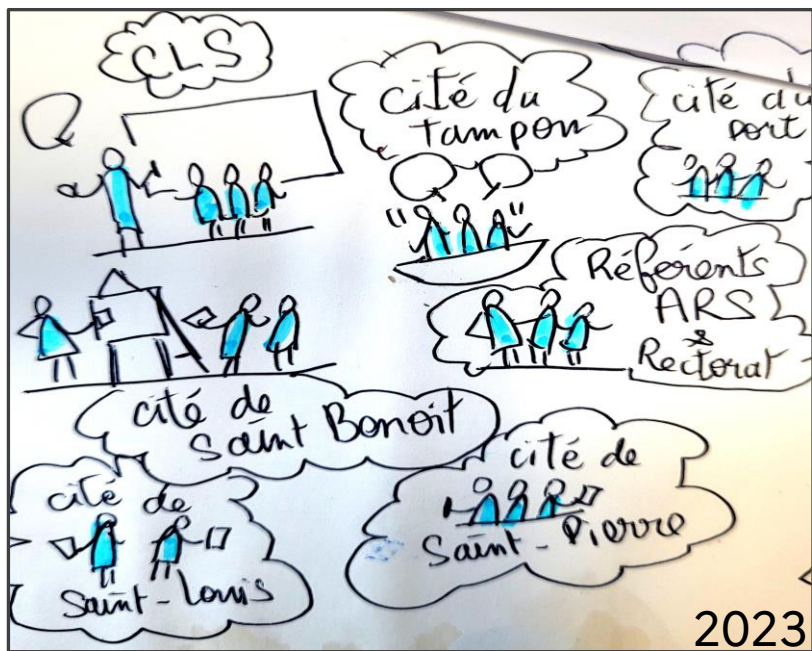 CLS
cité du
tampon
cité du
port
Réferents
ARS
&
Rectorat
cité de
Saint Benoit
cité de
Saint-Louis
cité de
Saint-Pierre
2023